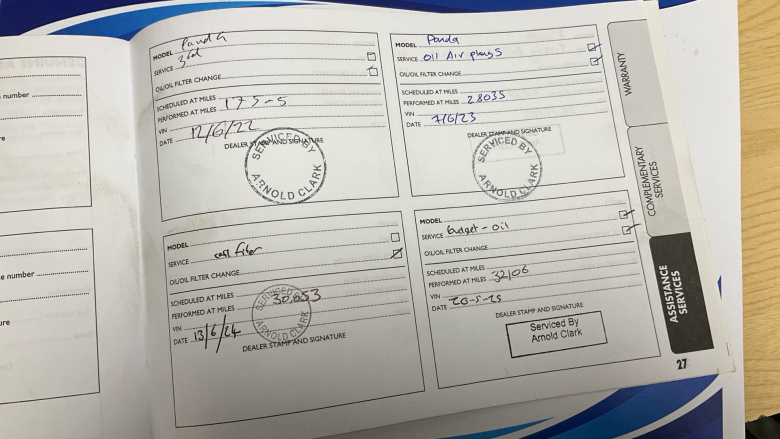 number
e number
ure
MODEL Panda
SERVICE 3rd
OIL/OIL FILTER CHANGE
SCHEDULED AT MILES
PERFORMED AT MILES 175-5
VIN
DATE 12/6/22
DEALER STAMP AND SIGNATURE
SERVICED BY
ARNOLD CLARK
MODEL Panda
SERVICE Oil Air plugs
OIL/OIL FILTER CHANGE
SCHEDULED AT MILES
PERFORMED AT MILES 28035
VIN
DATE 7/6/23
DEALER STAMP AND SIGNATURE
SERVICED BY
ARNOLD CLARK
MODEL
SERVICE
OIL/OIL FILTER CHANGE
SCHEDULED AT MILES
PERFORMED AT MILES 30,053
VIN
DATE 13/6/24
DEALER STAMP AND SIGNATURE
SERVICED BY
ARNOLD CLARK
MODEL
SERVICE budget - oil
OIL/OIL FILTER CHANGE
SCHEDULED AT MILES
PERFORMED AT MILES 32,106
VIN
DATE 20-5-25
DEALER STAMP AND SIGNATURE
Serviced By
Arnold Clark
WARRANTY
COMPLEMENTARY
SERVICES
ASSISTANCE
SERVICES
27